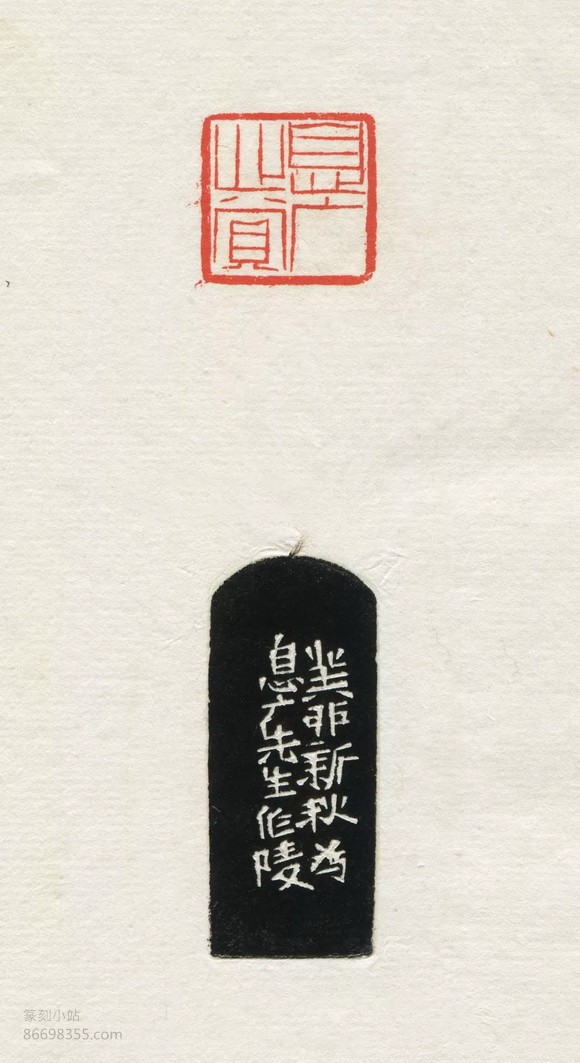 息广
癸卯新秋为
息广先生作陵
篆刻小站
86698355.com